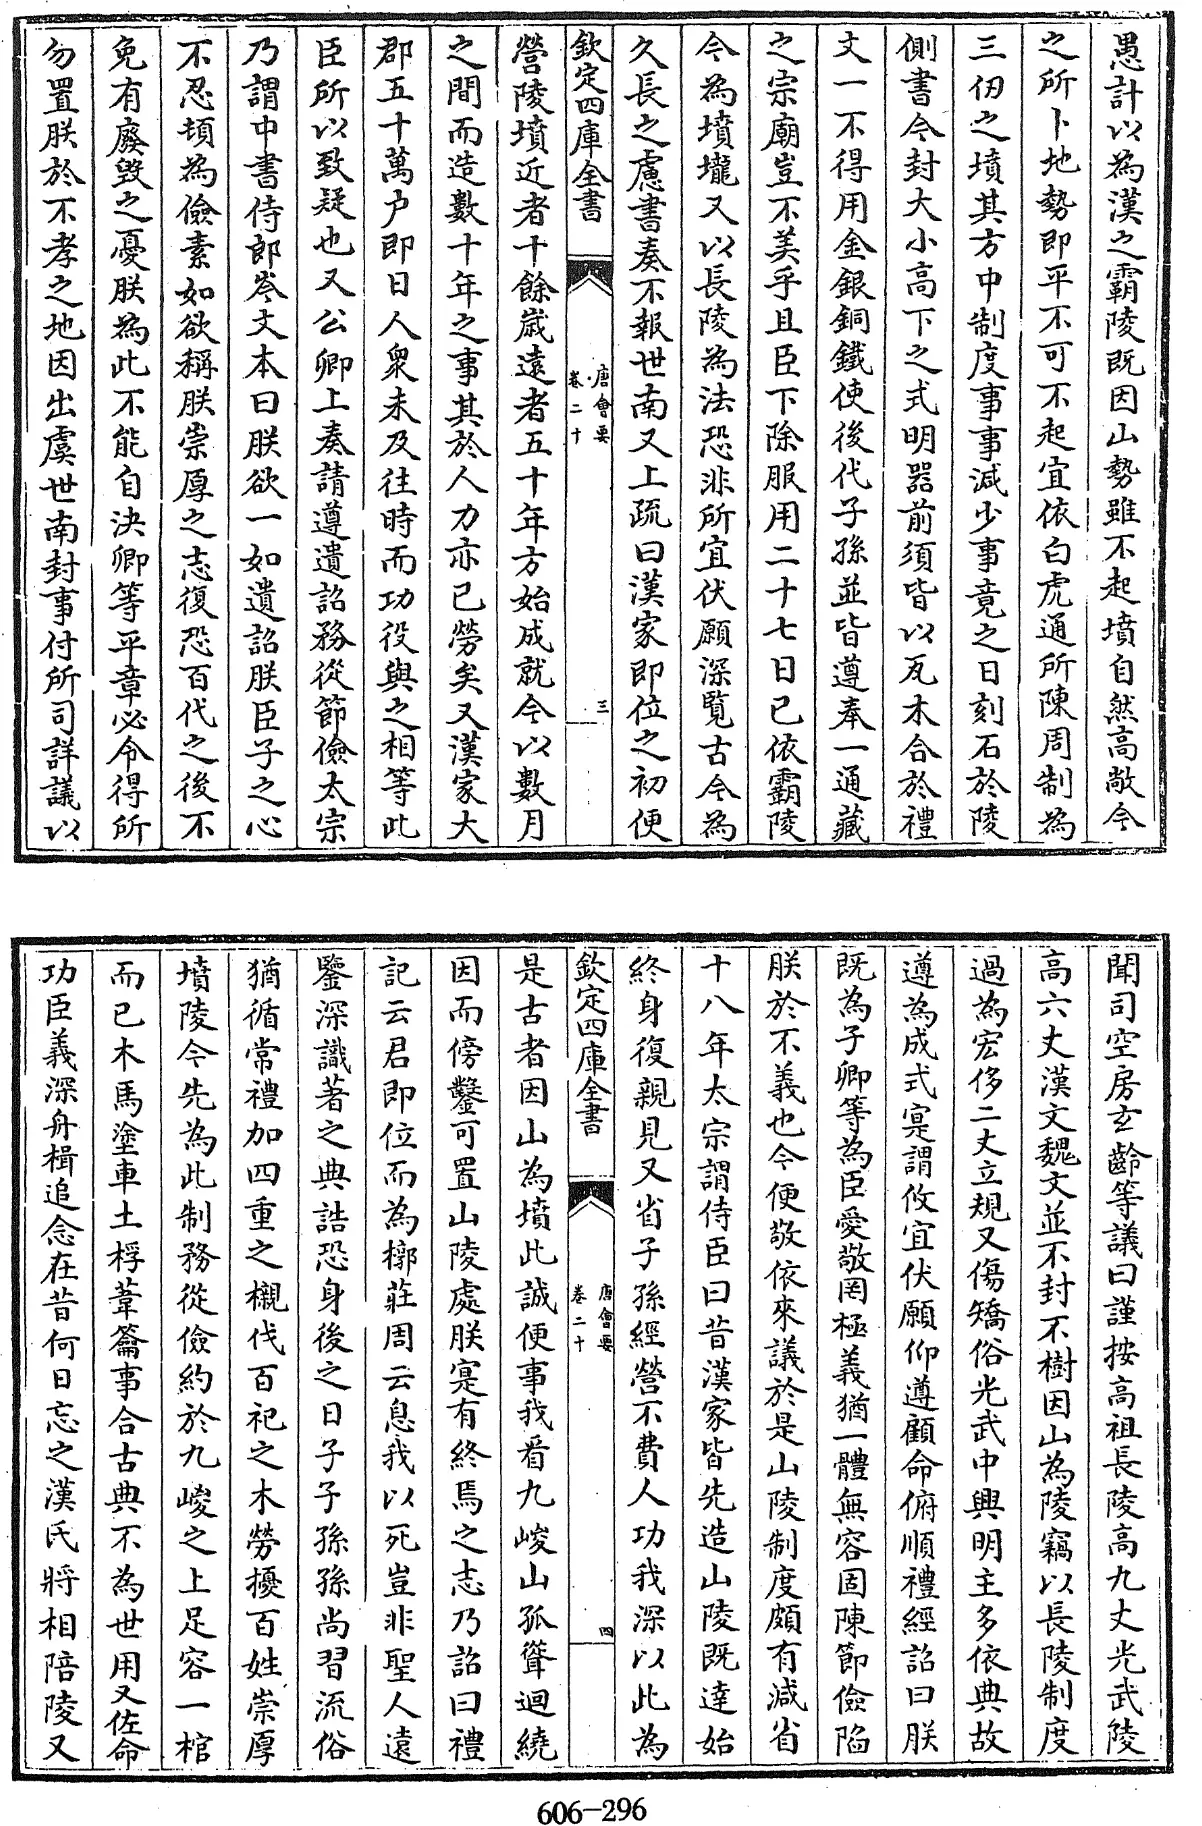 愚計以為漢之霸陵既因山勢雖不起墳自然高敞今
之所卜地勢即平不可不起宜依白虎通所陳周制為
三仞之墳其方中制度事事減少事竟之日刻石於陵
側書今封大小高下之式明器前須皆以瓦木合於禮
文一不得用金銀銅鐵使後代子孫並皆遵奉一通藏
之宗廟豈不美乎且臣下除服用二十七日已依霸陵
今為墳壠又以長陵為法恐非所宜伏願深覽古今為
久長之慮書奏不報世南又上疏曰漢家即位之初便
欽定四庫全書
唐會要
卷二十
三
營陵墳近者十餘歲遠者五十年方始成就今以數月
之間而造數十年之事其於人力亦已勞矣又漢家大
郡五十萬戶即日人衆未及往時而功役與之相等此
臣所以致疑也又公卿上奏請遵遺詔務從節儉太宗
乃謂中書侍郎岑文本曰朕欲一如遺詔朕臣子之心
不忍頓為儉素如欲稱朕崇厚之志復恐百代之後不
免有廢毀之憂朕為此不能自決卿等平章必令得所
勿置朕於不孝之地因出虞世南封事付所司詳議以
聞司空房玄齡等議曰謹按高祖長陵高九丈光武陵
高六丈漢文魏文並不封不樹因山為陵竊以長陵制度
過為宏侈二丈立規又傷矯俗光武中興明主多依典故
遵為成式寔謂攸宜伏願仰遵顧命俯順禮經詔曰朕
既為子卿等為臣愛敬罔極義猶一體無容固陳節儉陷
朕於不義也今便敬依來議於是山陵制度頗有減省
十八年太宗謂侍臣曰昔漢家皆先造山陵既達始
終身復親見又省子孫經營不費人功我深以此為
欽定四庫全書
唐會要
卷二十
四
是古者因山為墳此誠便事我看九嵕山孤聳迴繞
因而傍鑿可置山陵處朕寔有終焉之志乃詔曰禮
記云君即位而為槨莊周云息我以死豈非聖人遠
鑒深識著之典誥恐身後之日子子孫孫尚習流俗
猶循常禮加四重之櫬伐百祀之木勞擾百姓崇厚
墳陵今先為此制務從儉約於九嵕之上足容一棺
而已木馬塗車土桴葦籥事合古典不為世用又佐命
功臣義深舟楫追念在昔何日忘之漢氏將相陪陵又
606-296